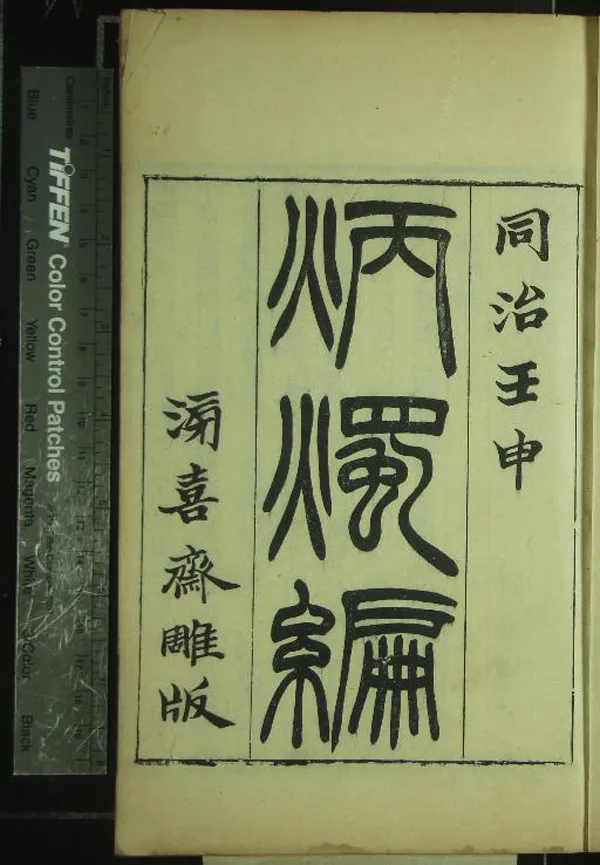 同治壬申
炳燭編
滂喜齋雕版
Inches
Centimetres
TIFFEN Color Control Patches
Blue Cyan Green Yellow Red Magenta White 3/Color Black